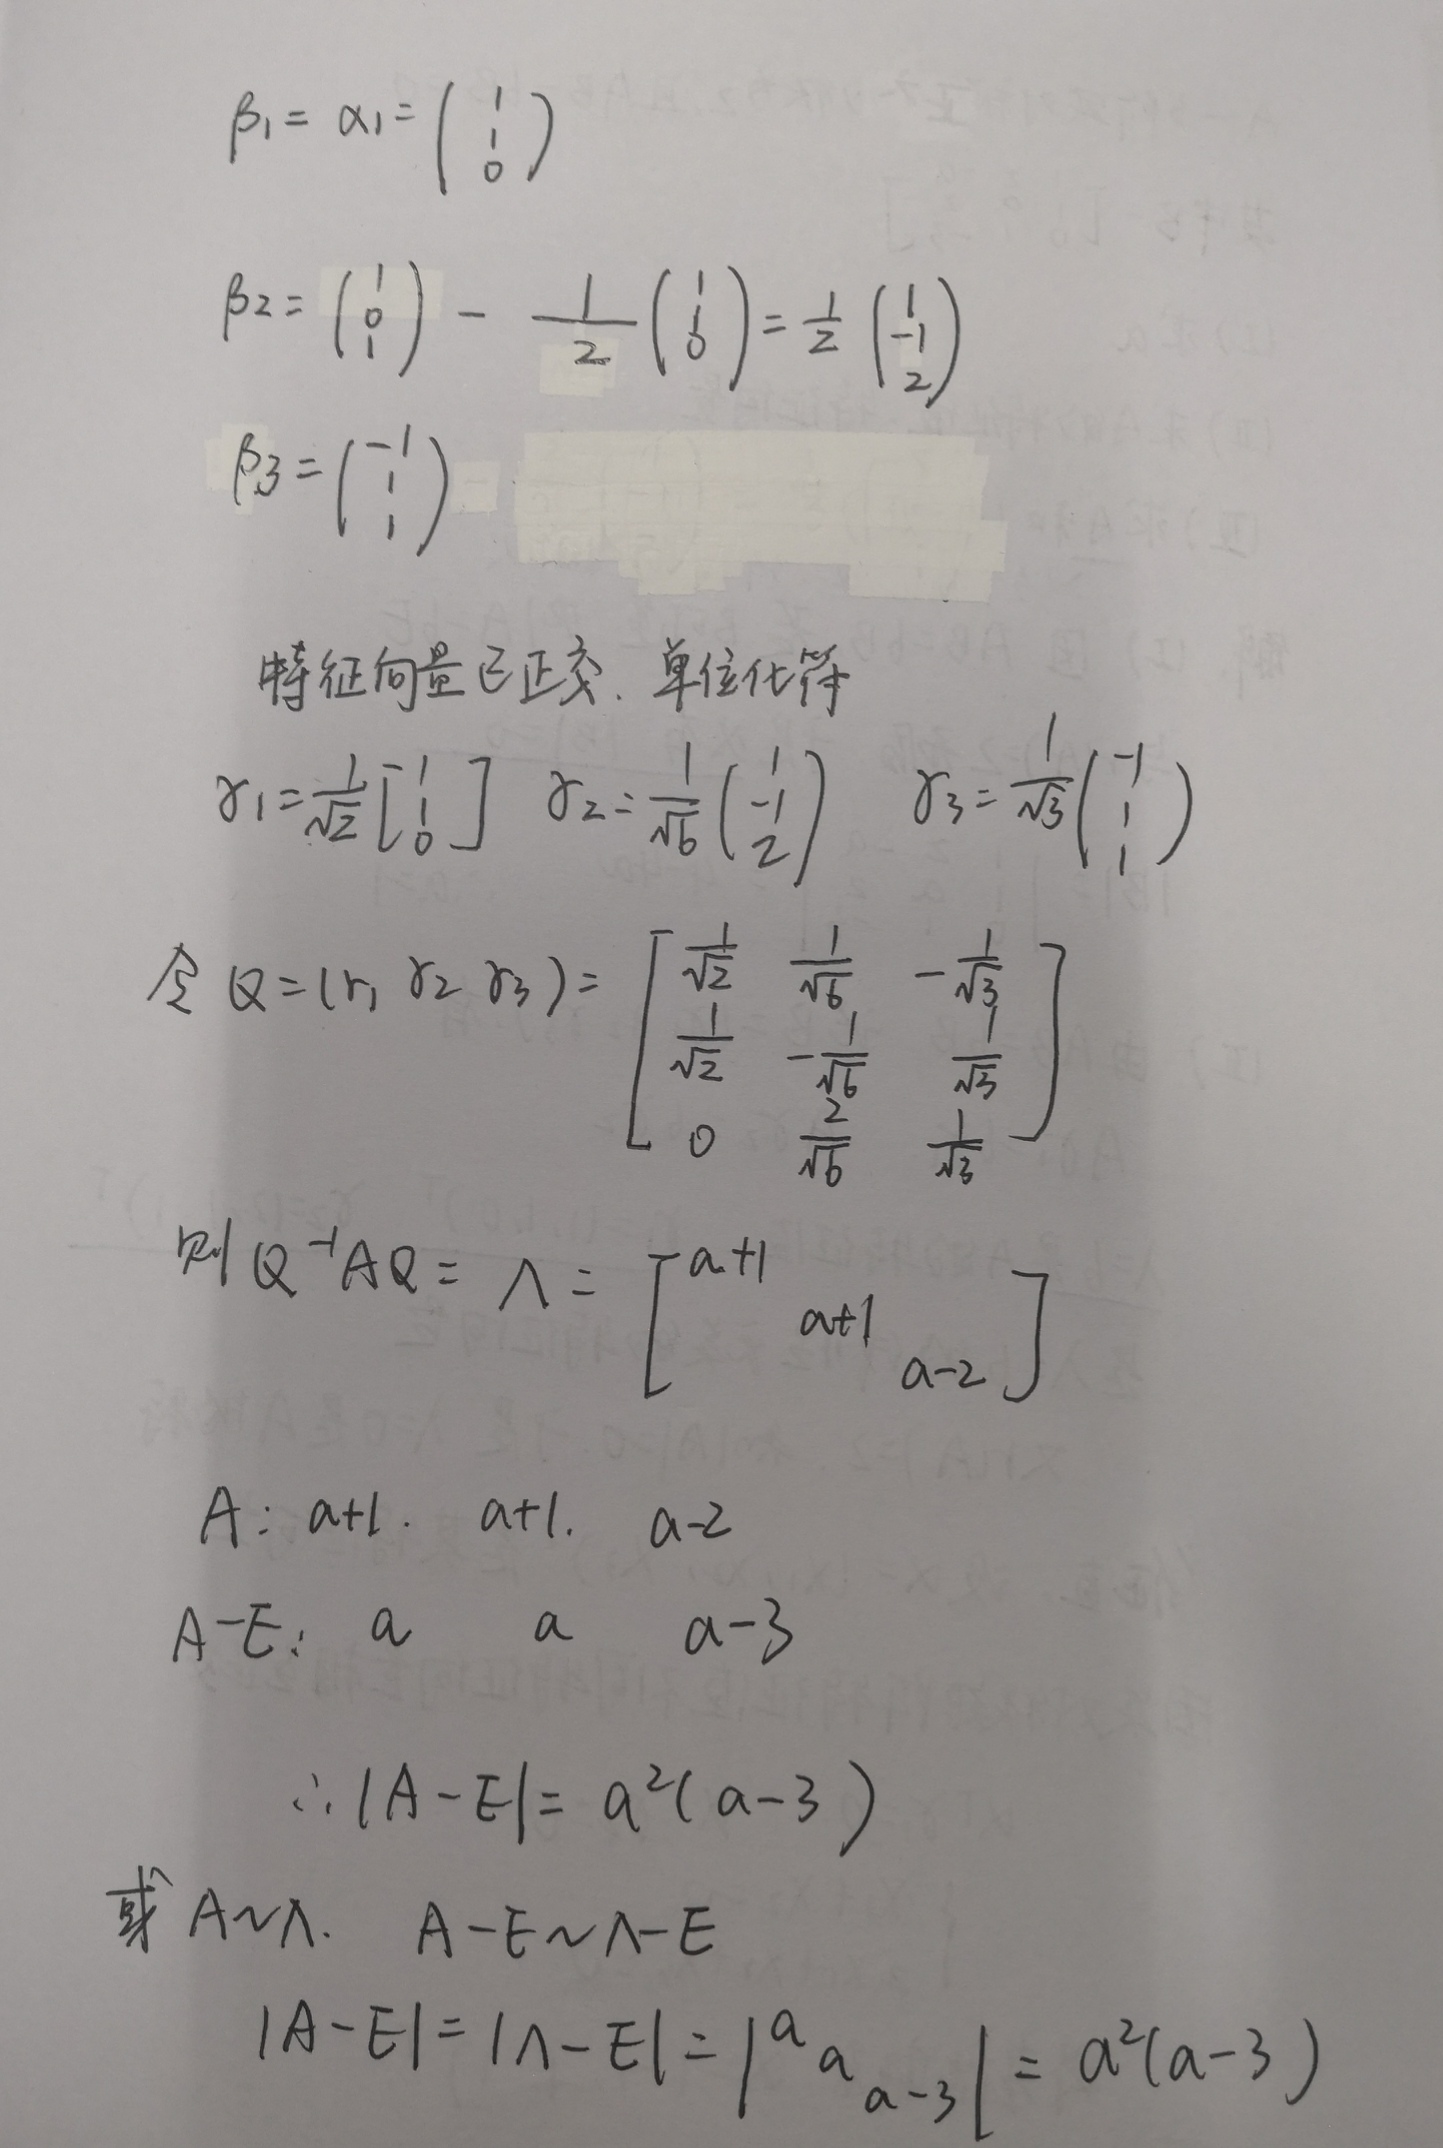 β1 = α1 = (1 1 0)
β2 = (1 0 1) - 1/2 (1 1 0) = 1/2 (1 -1 2)
β3 = (-1 1 1)
特征向量已正交. 单位化得
γ1 = 1/√2 [1 1 0] γ2 = 1/√6 (1 -1 2) γ3 = 1/√3 (-1 1 1)
令 Q = (r1 γ2 γ3) = [1/√2 1/√6 -1/√3
1/√2 -1/√6 1/√3
0 2/√6 1/√3]
则 Q⁻¹AQ = Λ = [a+1
a+1
a-2]
A: a+1. a+1. a-2
A-E: a a a-3
∴ |A-E| = a²(a-3)
或 A~Λ. A-E~Λ-E
|A-E| = |Λ-E| = |a a a-3| = a²(a-3)